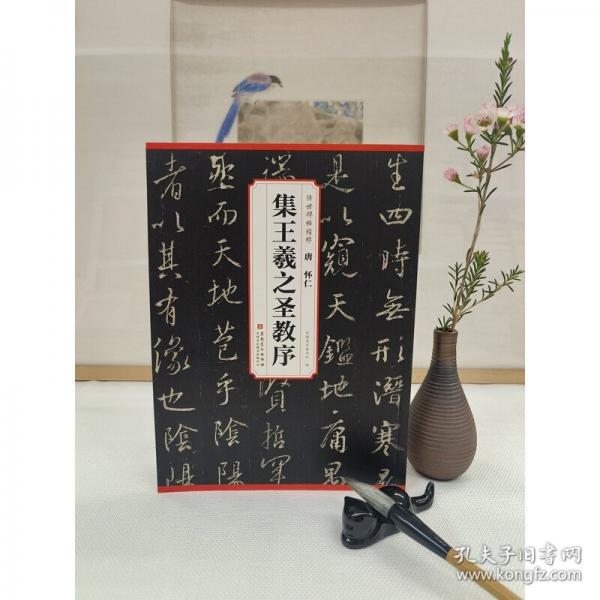 生四時無形潛寒
是以窺天鑑地庸愚
端
賢哲罕
然而天地苞乎陰陽
者以其有像也陰陽
传世碑帖精粹
唐 怀仁
集王羲之圣教序
孔夫子旧书网
www.kongfz.com